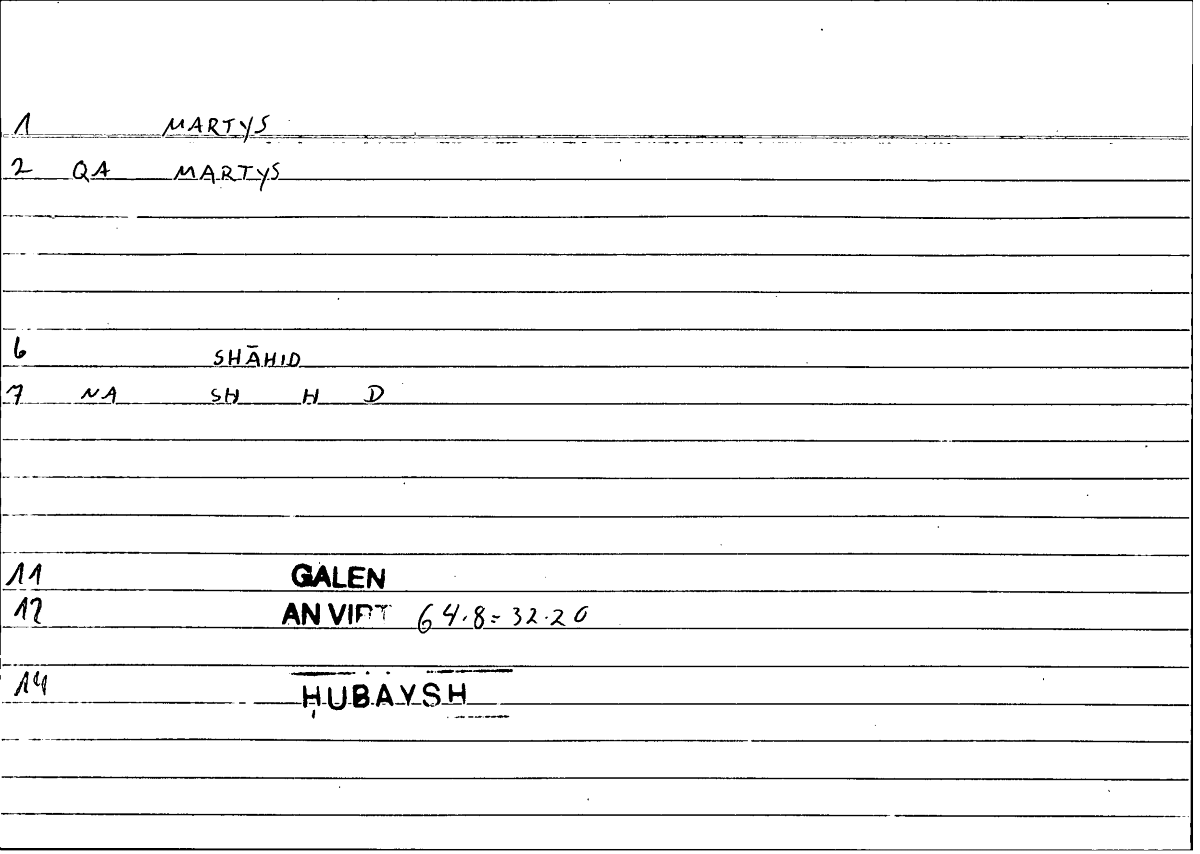 1 MARTYS
2 QA MARTYS
6 SHĀHID
7 NA SH H D
11 GALEN
12 AN VIRT 64.8=32.20
14 ḤUBAYSH